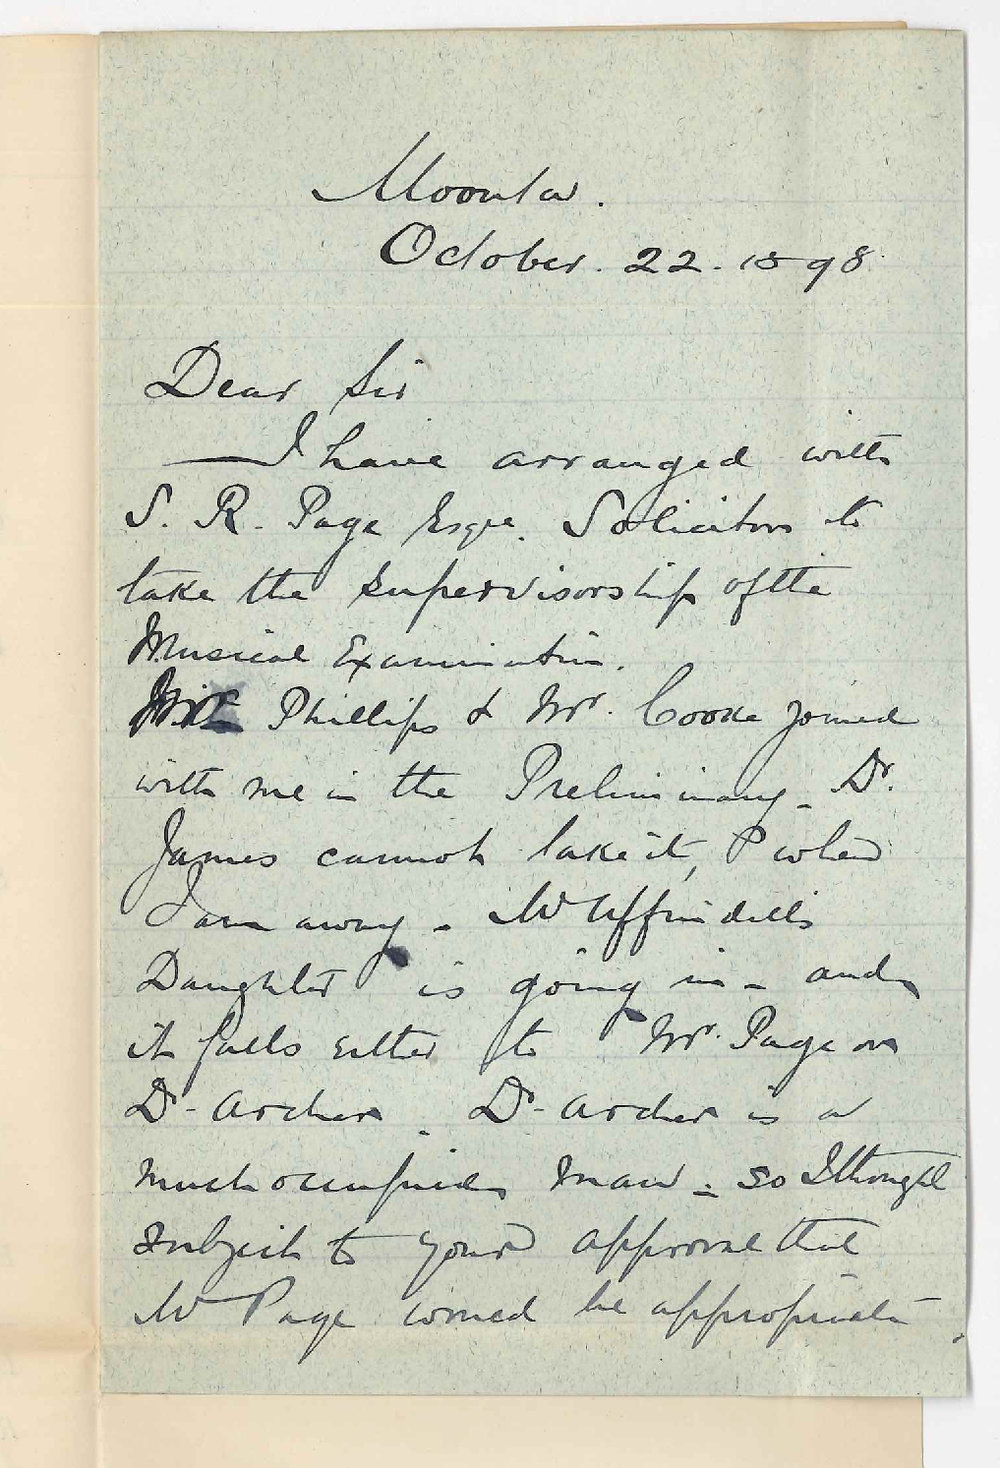 Moonta.
October. 22. 1898.
Dear Sir
I have arranged with
S. R. Page Esqre. Solicitor to
take the supervisorship of the
Musical Examination.
Phillips & Mr. Cooke joined
with me in the Preliminary - Dr.
James cannot take it, & when
I am away - Mr Uffindell's
Daughter is going in - and
it falls either to Mr. Page or
Dr - Archer. Dr - Archer is a
much occupied man - so I thought
subject to your approval that
Mr Page would be appropriate